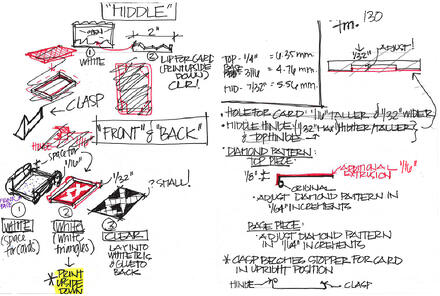 "MIDDLE"
OPEN
2"
①
WHITE
② LIP FOR CARD
(PRINT UPSIDE
DOWN)
CLR!
CLASP
"FRONT" & "BACK"
space for
1/16"
1/32"
? SMALL!
①
WHITE
(space
for cards)
②
WHITE
(white
triangles)
* PRINT
UPSIDE
DOWN
③
CLEAR
LAY INTO
WHITE TRIS
& GLUE TO
BACK
130
1/32"
ADJUST!
TOP - 1/4" = 6.35 mm.
BASE - 3/16 = 4.76 mm.
MID - 7/32" = 5.56 mm.
• HOLE FOR CARD 1/16" TALLER & 1/32" WIDER
• MIDDLE HINGE (1/32" TALLER)
& TOP HINGE
• DIAMOND PATTERN:
TOP PIECE:
1/8"
ADDITIONAL 1/16"
EXTRUSION
ORIGINAL
• ADJUST DIAMOND PATTERN IN
1/64" INCREMENTS
BASE PIECE:
• ADJUST DIAMOND PATTERN
IN 1/64" INCREMENTS
* CLASP BECOMES STOPPER FOR CARD
IN UPRIGHT POSITION
HINGE
CLASP